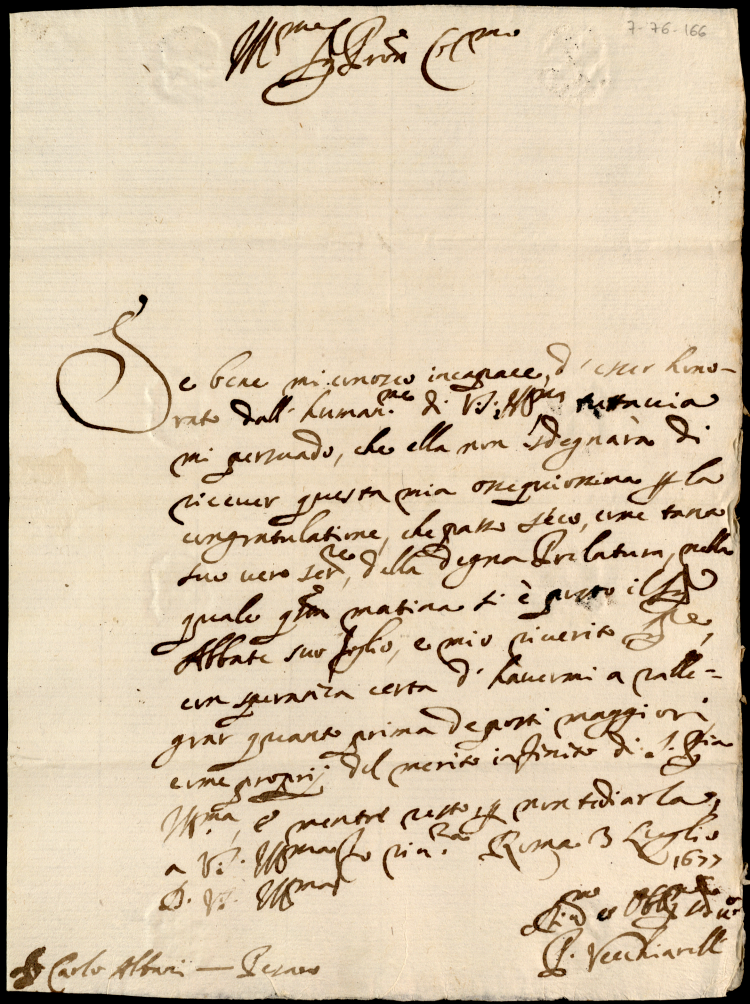 7-76-166
Ill.mo Sig.r Pron Col.mo
Se bene mi conosco incapace, d'esser hono-
rato dall'human.tà di V.S. Ill.ma tuttavia
mi persuado, che ella non sdegnarà di
ricever questa mia ossequiosissima p la
congratulatione, che passo seco, come
suo vero ser.re, della degna Prelatura, nella
quale matina si è posto il Sig.r
Abbate suo figlio, e mio riverito
con speranza certa d'havermi a ralle=
grar quanto prima de posti maggiori,
come proprij del merito infinito di S. Sig.ria
Ill.ma, e mentre resto p non tediarla,
a V.S. Ill.ma fo riv.za Roma 3 Luglio
1677
D. V.S. Ill.ma
Dev.mo et Obl.mo
P. Vecchiarelli
Carlo Albani — Pesaro